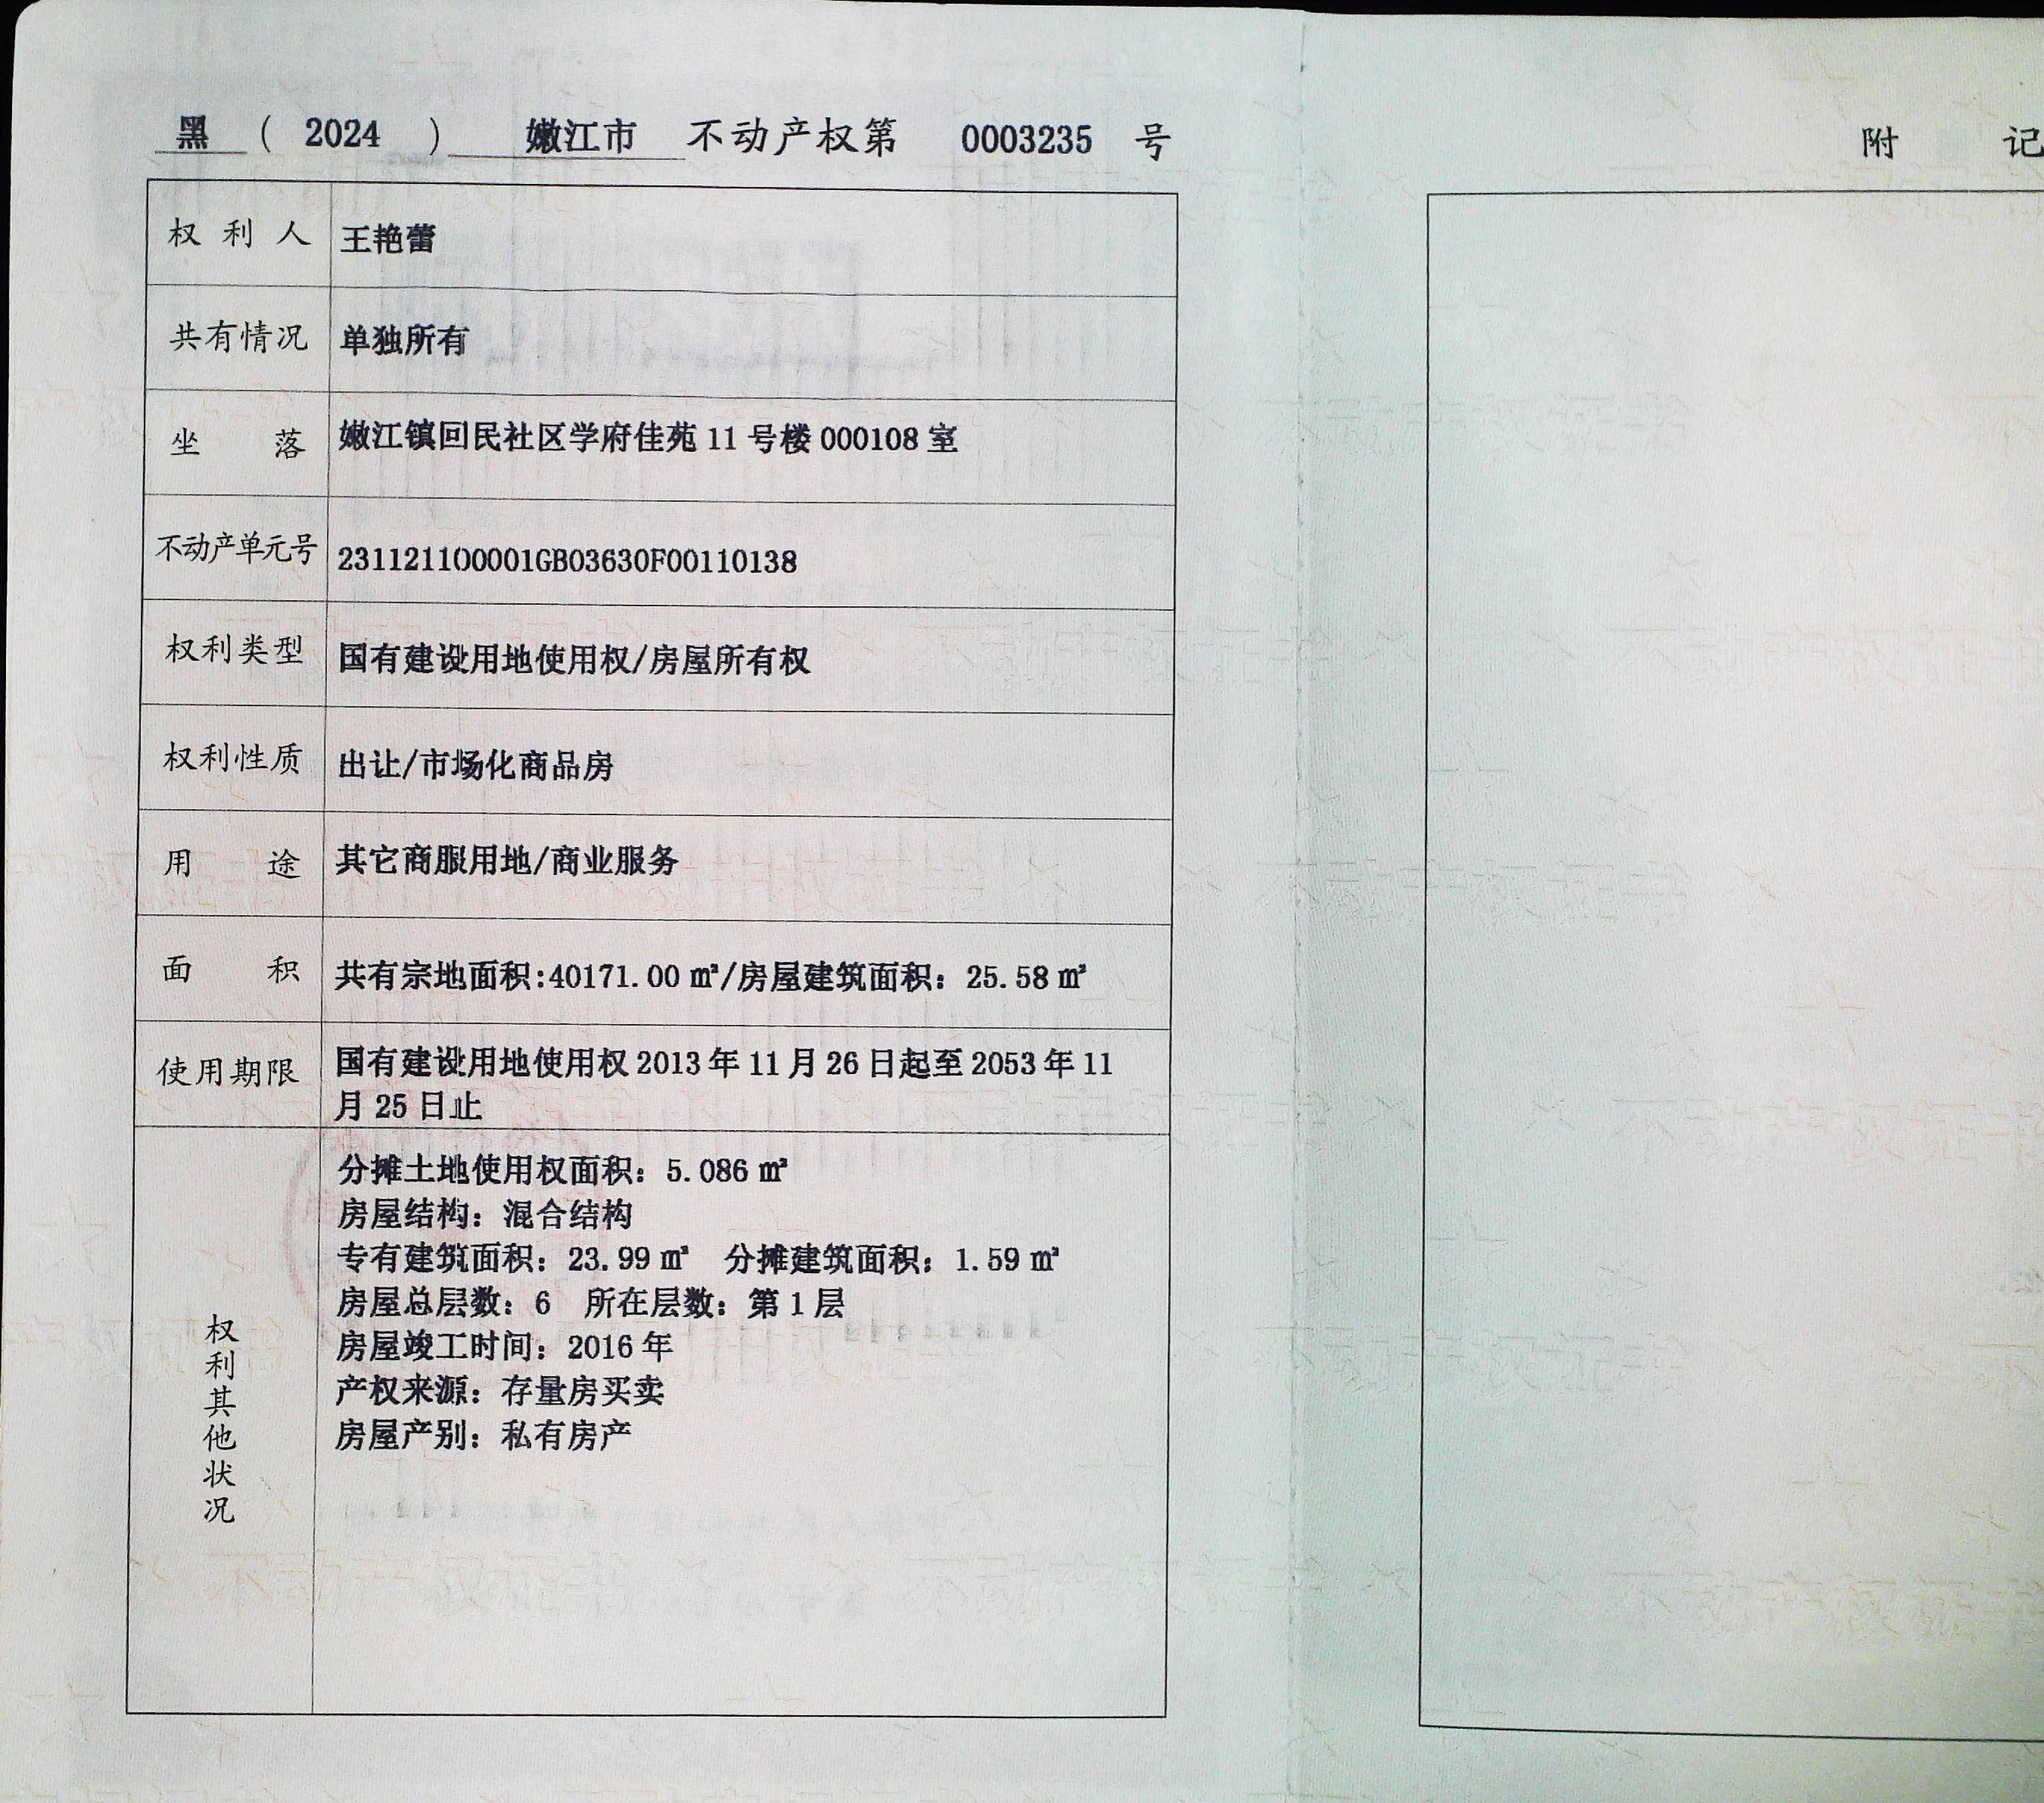 黑 ( 2024 ) 嫩江市 不动产权第 0003235 号
附 记
权利人 王艳蕾
共有情况 单独所有
坐落 嫩江镇回民社区学府佳苑 11 号楼 000108 室
不动产单元号 231121100001GB03630F00110138
权利类型 国有建设用地使用权/房屋所有权
权利性质 出让/市场化商品房
用途 其它商服用地/商业服务
面积 共有宗地面积:40171.00 ㎡/房屋建筑面积：25.58 ㎡
使用期限 国有建设用地使用权 2013 年 11 月 26 日起至 2053 年 11
月 25 日止
权利其他状况
分摊土地使用权面积：5.086 ㎡
房屋结构：混合结构
专有建筑面积：23.99 ㎡ 分摊建筑面积：1.59 ㎡
房屋总层数：6 所在层数：第 1 层
房屋竣工时间：2016 年
产权来源：存量房买卖
房屋产别：私有房产